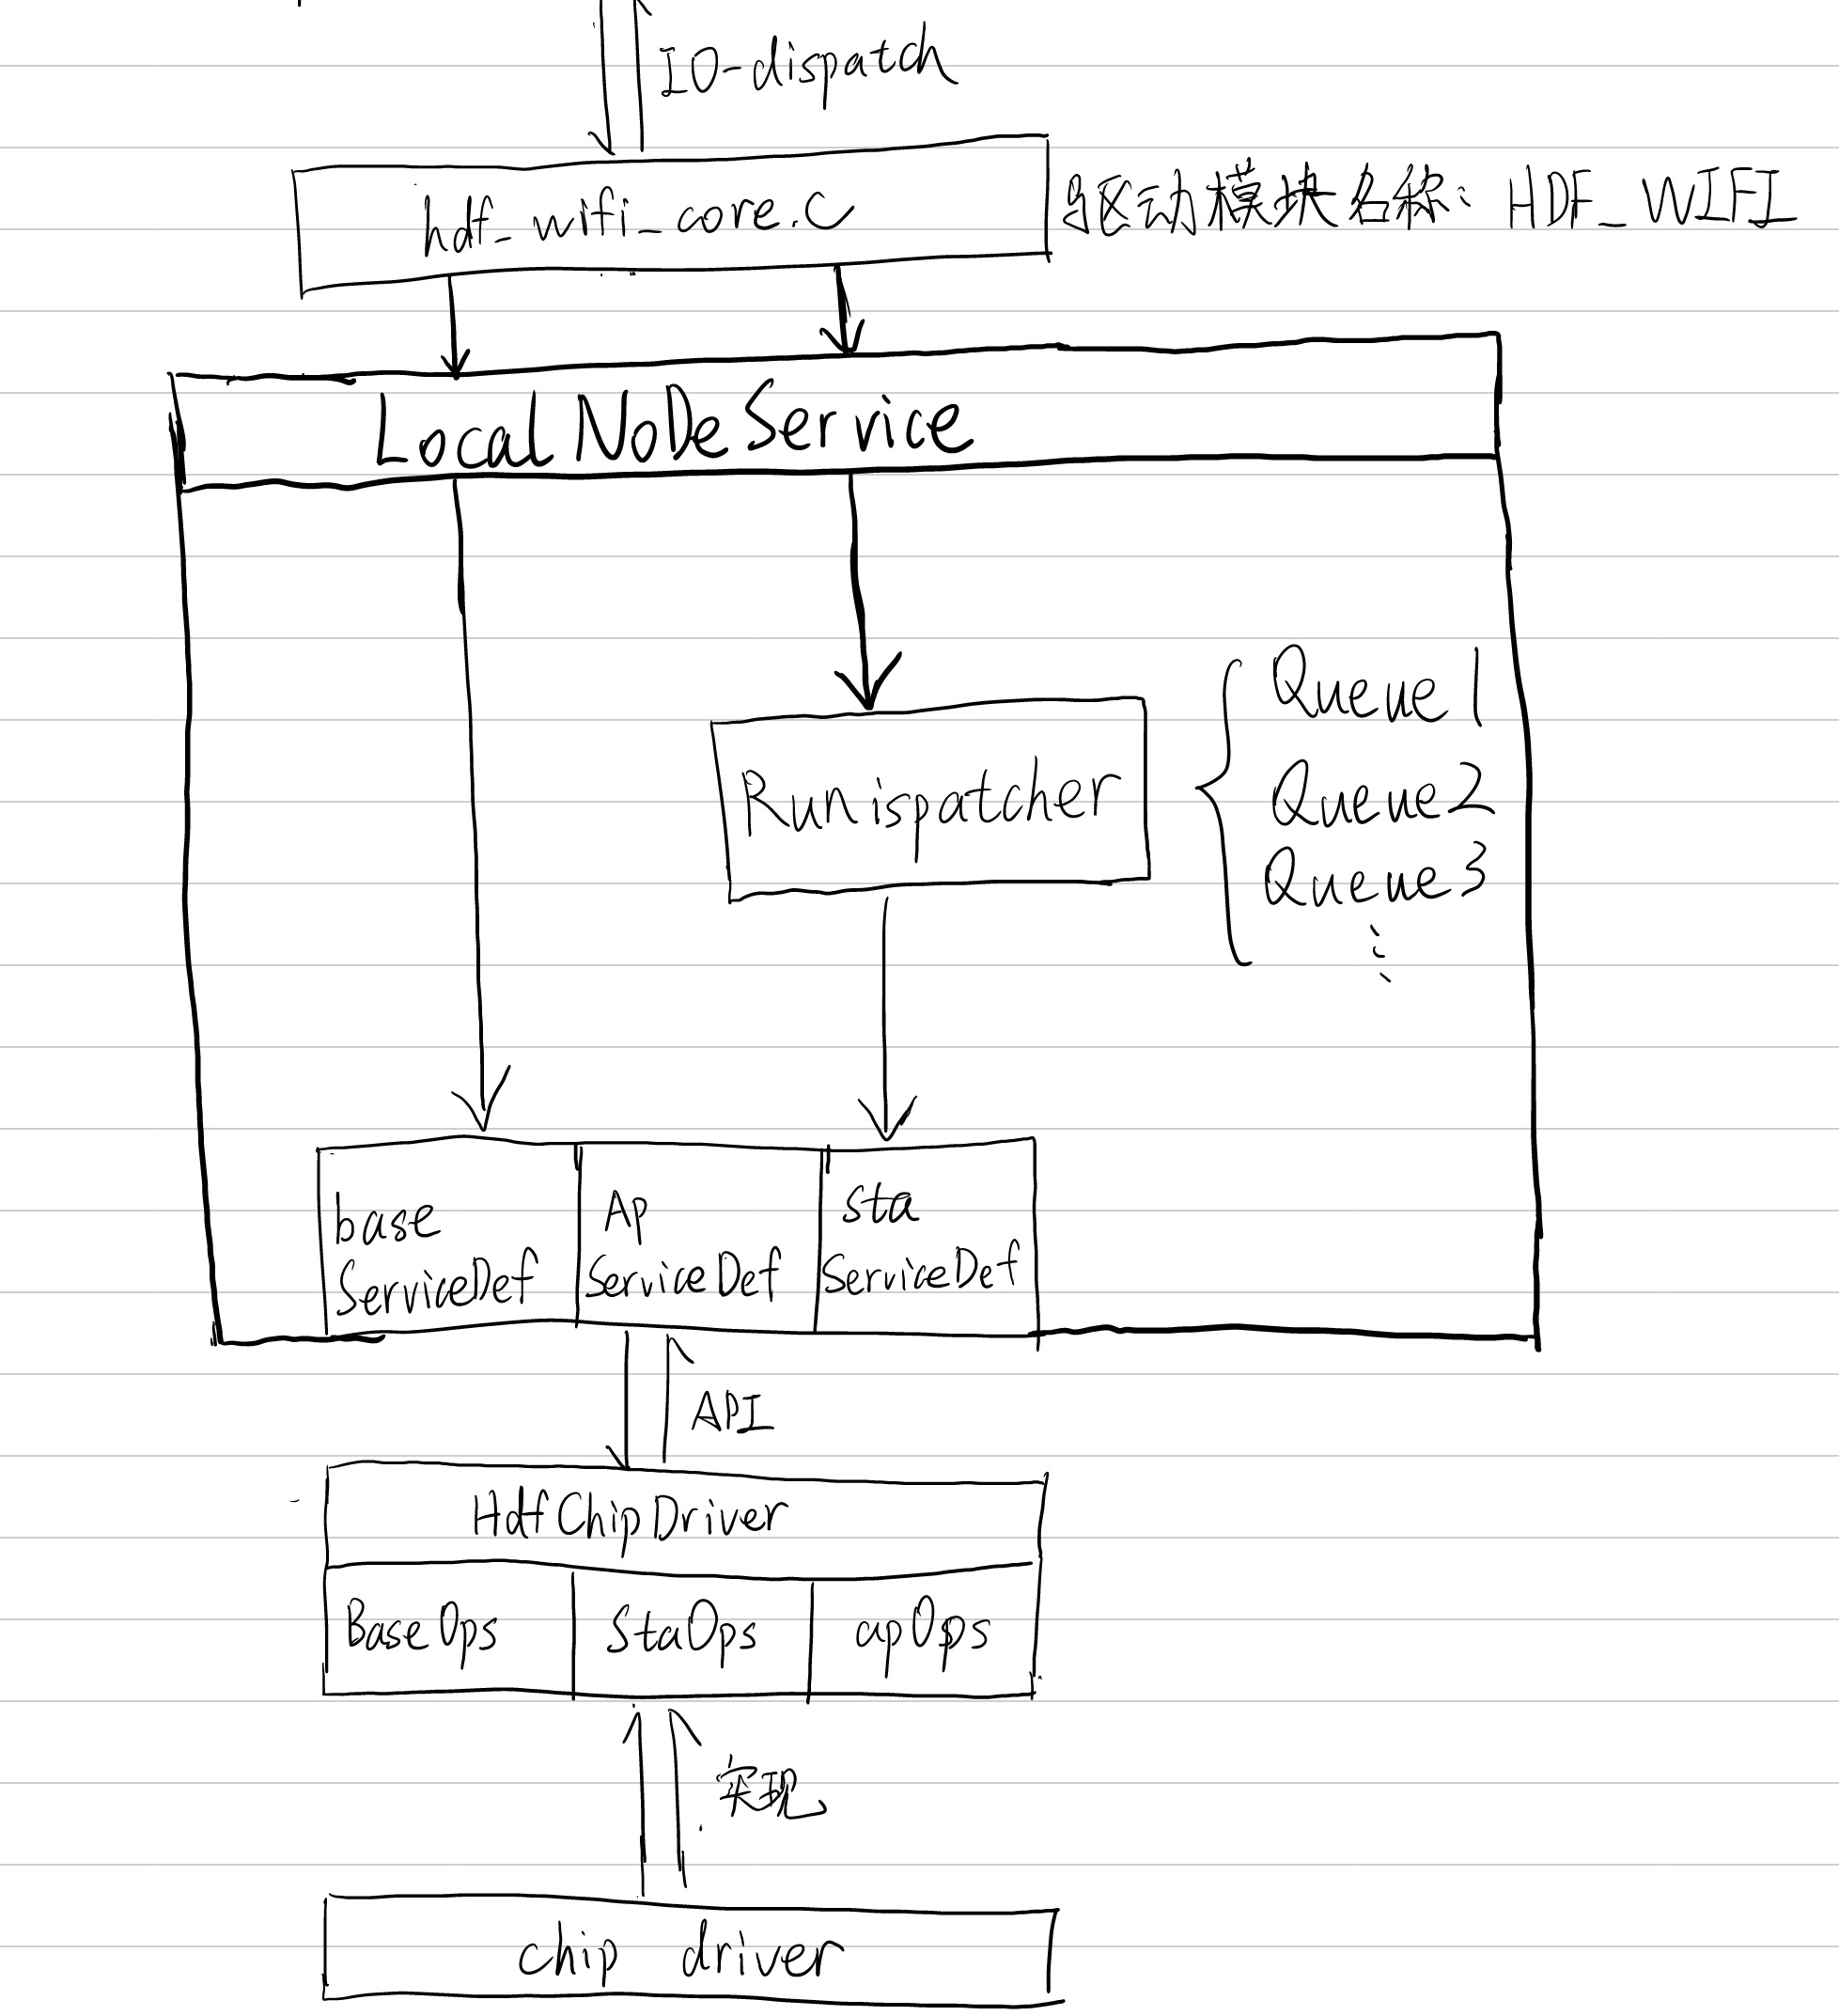 IO-dispatch
hdf_wifi_core.c
驱动模块名称: HDF_WIFI
LocalNoDeService
Runispatcher
Queue1
Queue2
Queue3
⋮
base
ServiceDef
Ap
ServiceDef
sta
ServiceDef
API
HdfChipDriver
BaseOps
StaOps
apOps
实现
chip driver